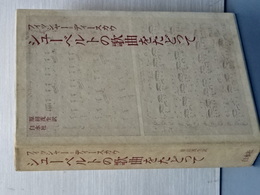 フィッシャー=ディースカウ
シューベルトの歌曲をたどって
原田茂生訳
白水社
フィッシャー=ディースカウ
シューベルトの歌曲をたどって